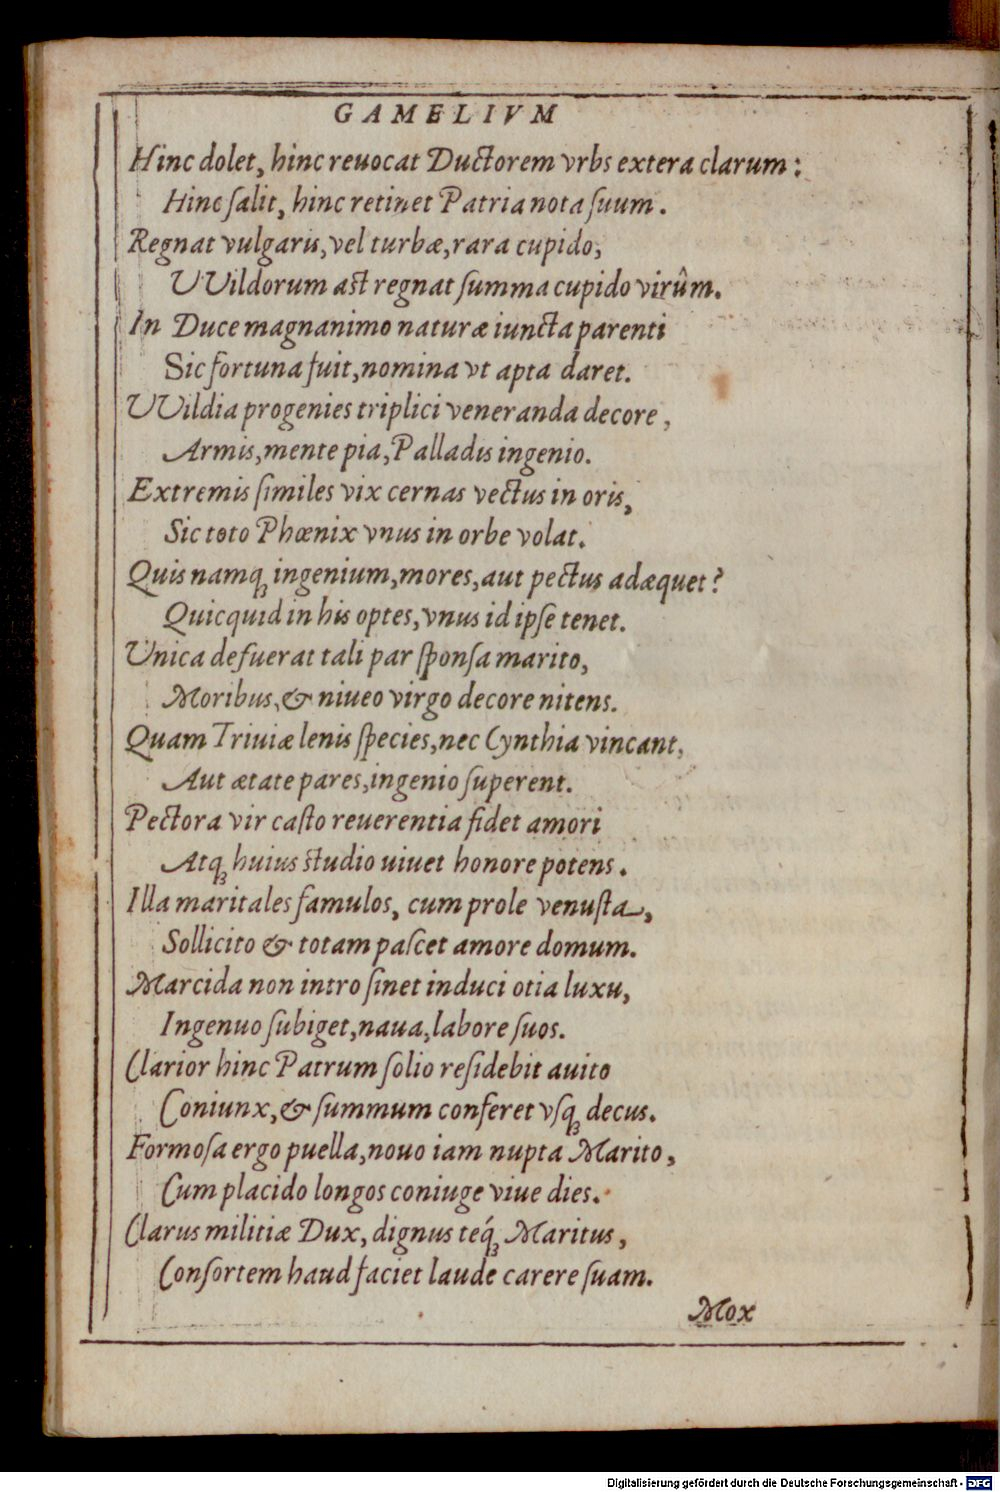 GAMELIVM
Hinc dolet, hinc reuocat Ductorem vrbs extera clarum:
Hinc ſalit, hinc retinet Patria nota ſuum.
Regnat vulgaris, vel turbæ, rara cupido,
VVildorum aſt regnat ſumma cupido virûm.
In Duce magnanimo naturæ iuncta parenti
Sic fortuna fuit, nomina vt apta daret.
VVildia progenies triplici veneranda decore,
Armis, mente pia, Palladis ingenio.
Extremis ſimiles vix cernas vectus in oris,
Sic toto Phœnix vnus in orbe volat.
Quis namqꝫ ingenium, mores, aut pectus adæquet?
Quicquid in his optes, vnus id ipſe tenet.
Vnica defuerat tali par ſponſa marito,
Moribus, & niueo virgo decore nitens.
Quam Triuiæ lenis ſpecies, nec Cynthia vincant,
Aut ætate pares, ingenio ſuperent.
Pectora vir caſto reuerentia fidet amori
Atqꝫ huius ſtudio uiuet honore potens.
Illa maritales famulos, cum prole venuſta,
Sollicito & totam paſcet amore domum.
Marcida non intro ſinet induci otia luxu,
Ingenuo ſubiget, naua, labore ſuos.
Clarior hinc Patrum ſolio reſidebit auito
Coniunx, & ſummum conferet vſqꝫ decus.
Formoſa ergo puella, nouo iam nupta Marito,
Cum placido longos coniuge viue dies.
Clarus militiæ Dux, dignus teq́ꝫ Maritus,
Conſortem haud faciet laude carere ſuam.
Mox
Digitalisierung gefördert durch die Deutsche Forschungsgemeinschaft - DFG